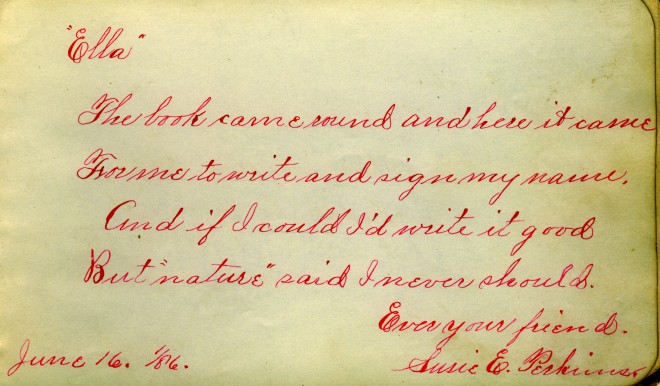 "Ella"
The book came round and here it came
For me to write and sign my name.
And if I could I'd write it good
But "nature" said I never should.
Ever your friend.
June 16. '86. Susie E. Perkins.